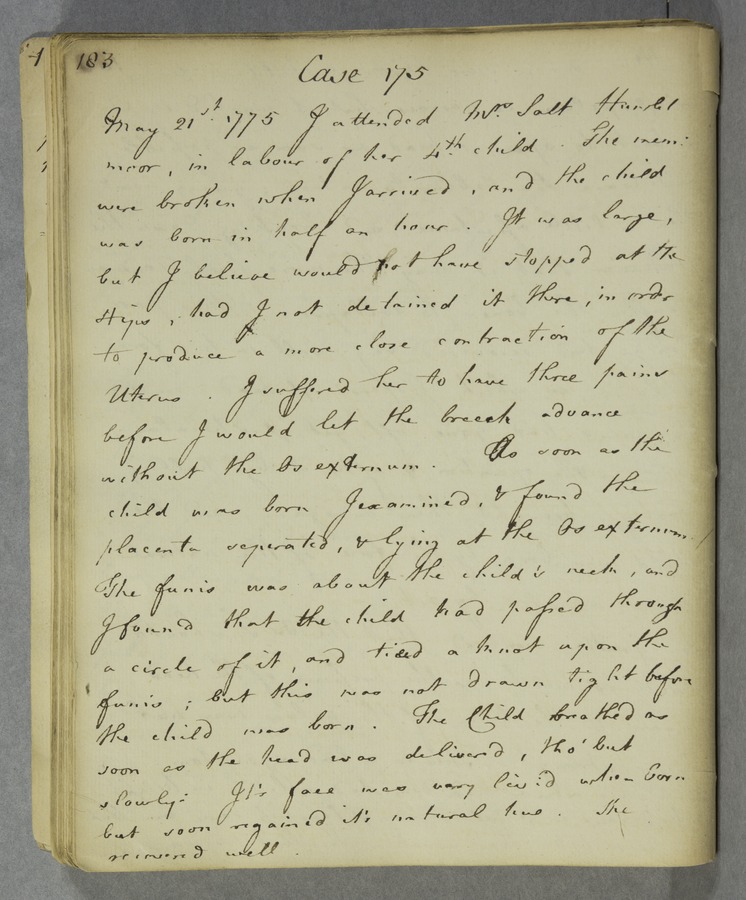 183
Case 175
May 21st. 1775 I attended Mrs. Salt
moor, in labour of her 4th child. The mem:
were broken when I arrived, and the child
was born in half an hour. It was large,
but I believe would not have stopped at the
Hips, had I not detained it there, in order
to produce a more close contraction of the
Uterus. I suffered her to have three pains
before I would let the breech advance
without the Os externum. As soon as the
child was born I examined, & found the
placenta seperated, & lying at the Os externum.
The funis was about the child's neck, and
I found that the child had passed through
a circle of it, and tied a knot upon the
funis; but this was not drawn tight before
the child was born. The Child breathed as
soon as the head was deliver'd, tho' but
slowly: It's face was very livid when born
but soon regained it's natural hue. She
recovered well.